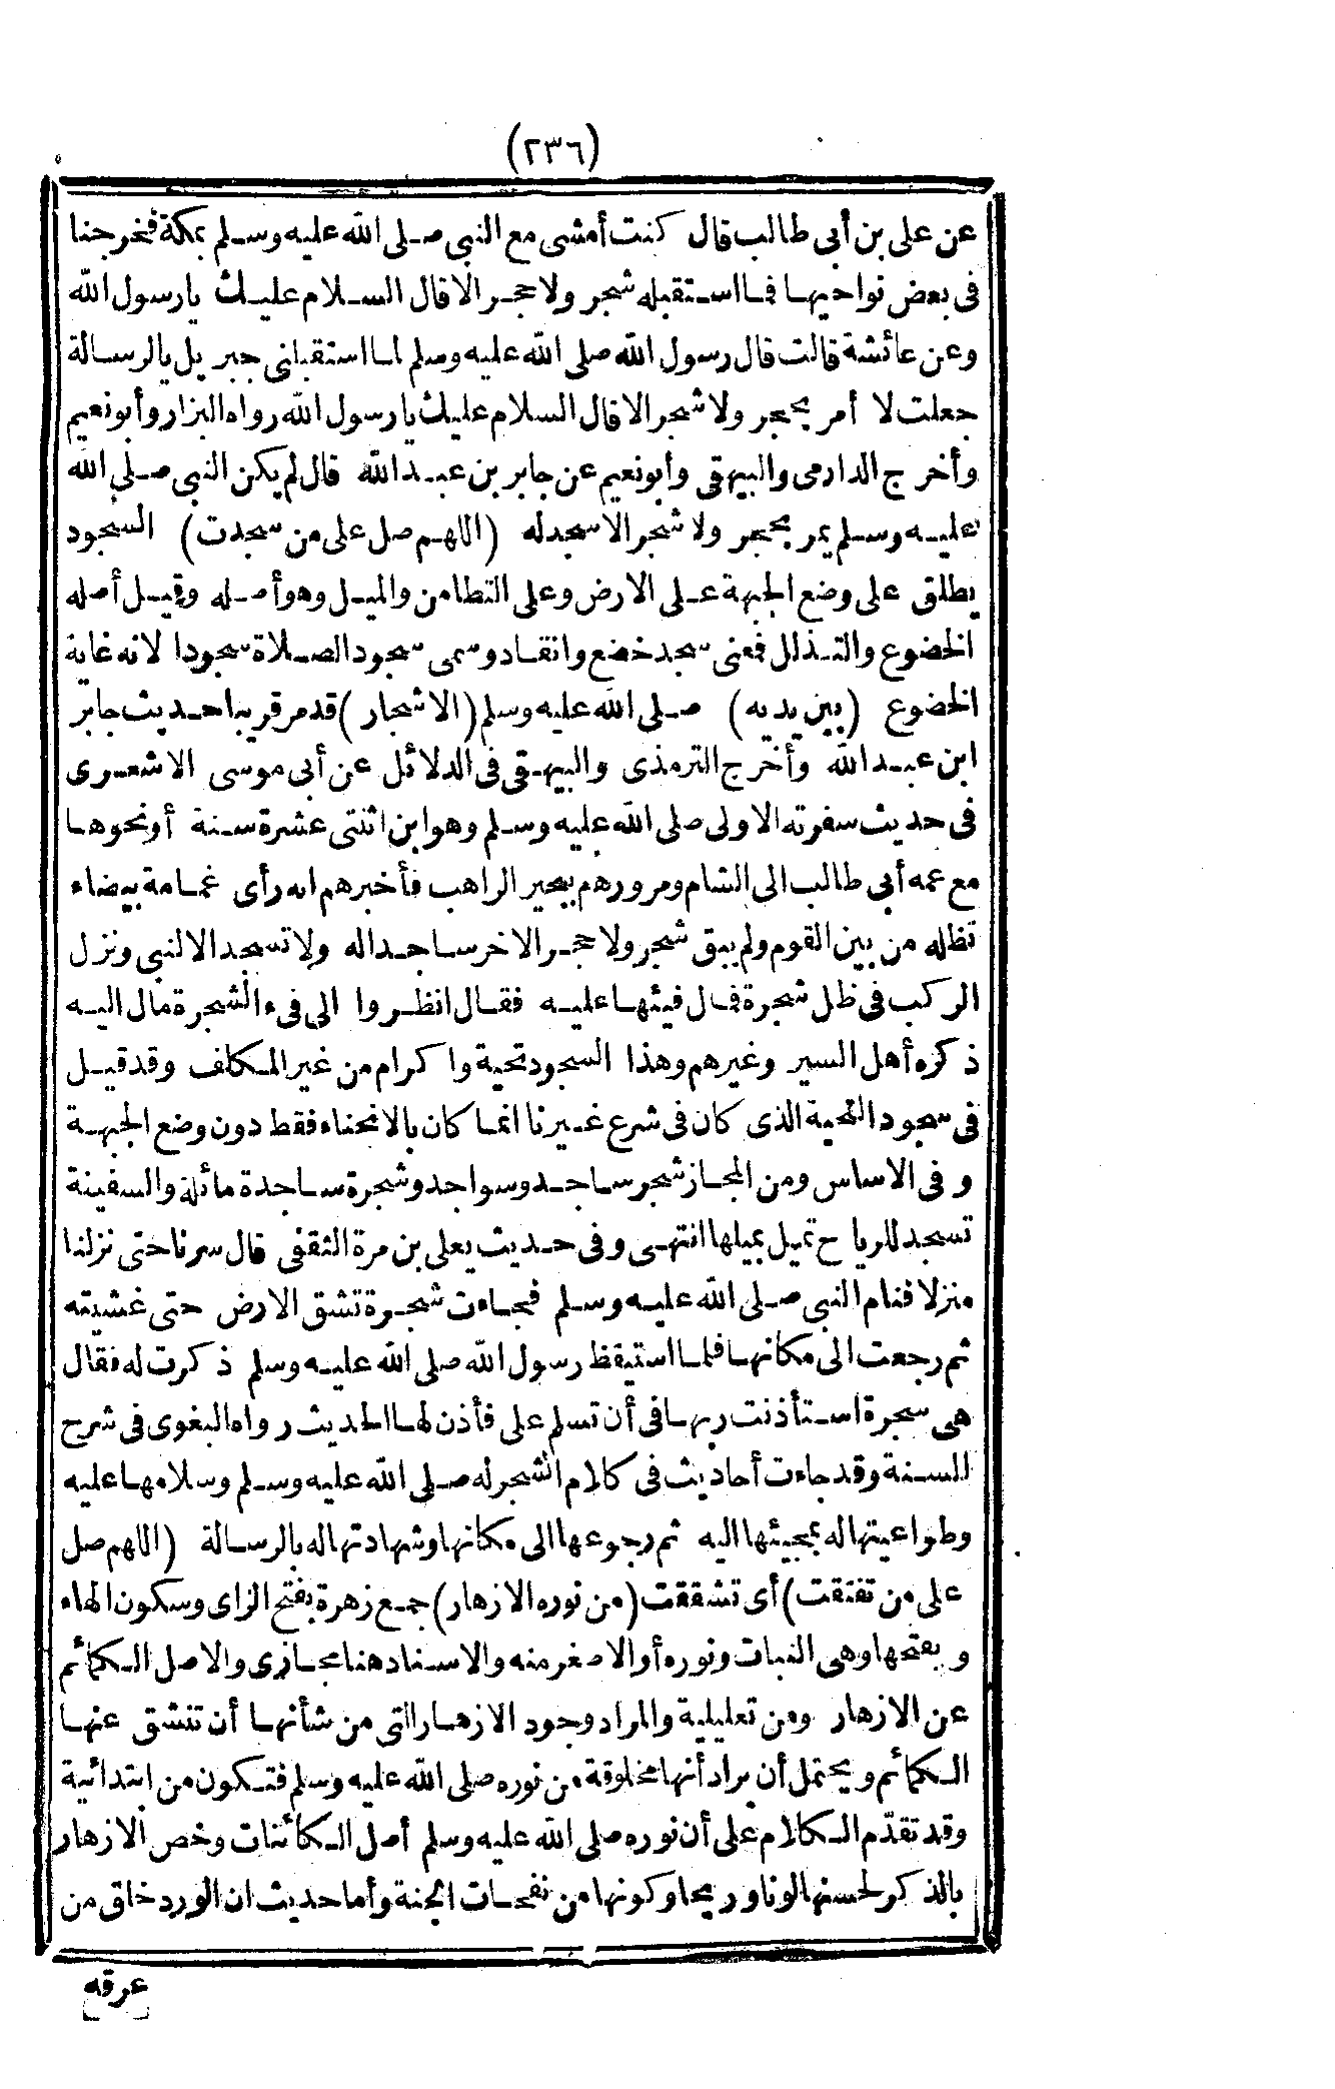 (٢٣٦)
عن على بن أبى طالب قال كنت أمشى مع النبى صلى الله عليه وسلم بمكة فخرجنا
فى بعض نواحيها فما استقبله شجر ولا حجر الا قال السلام عليك يارسول الله
وعن عائشة قالت قال رسول الله صلى الله عليه وسلم لما استقبلنى جبريل بالرسالة
جعلت لا أمر بحجر ولا شجر الا قال السلام عليك يارسول الله رواه البزار وأبونعيم
وأخرج الدارمى والبيهقى وأبونعيم عن جابر بن عبد الله قال لم يكن النبى صلى الله
عليه وسلم يمر بحجر ولا شجر الا سجدله (اللهم صل على من سجدت) السجود
يطلق على وضع الجبهة على الارض وعلى التطامن والميل وهو أصله وقيل أصله
الخضوع والتذلل فمعنى سجد خضع وانقاد وسمى سجود الصلاة سجودا لانه غاية
الخضوع (بين يديه) صلى الله عليه وسلم (الاشجار) قدمر قريبا حديث جابر
ابن عبد الله وأخرج الترمذى والبيهقى فى الدلائل عن أبى موسى الاشعرى
فى حديث سفرته الاولى صلى الله عليه وسلم وهو ابن اثنتى عشرة سنة أونحوها
مع عمه أبى طالب الى الشام ومرورهم ببحير الراهب فأخبرهم انه رأى غمامة بيضاء
تظله من بين القوم ولم يبق شجر ولا حجر الاخر ساجداله ولا تسجد الا لنبى ونزل
الركب فى ظل شجرة فمال فيئها عليه فقال انظروا الى فىء الشجرة مال اليه
ذكره أهل السير وغيرهم وهذا السجود تحية واكرام من غير المكلف وقد قيل
فى سجود التحية الذى كان فى شرع غيرنا انما كان بالانحناء فقط دون وضع الجبهة
وفى الاساس ومن المجاز شجر ساجد وسواجد وشجرة ساجدة مائلة والسفينة
تسجد للرياح تميل بميلها انتهى وفى حديث يعلى بن مرة الثقفى قال سرنا حتى نزلنا
منزلا فنام النبى صلى الله عليه وسلم فجاءت شجرة تشق الارض حتى غشيته
ثم رجعت الى مكانها فلما استيقظ رسول الله صلى الله عليه وسلم ذكرت له فقال
هى شجرة استأذنت ربها فى أن تسلم على فأذن لها الحديث رواه البغوى فى شرح
السنة وقد جاءت أحاديث فى كلام الشجر له صلى الله عليه وسلم وسلامها عليه
وطواعيتها له بمجيئها اليه ثم رجوعها الى مكانها وشهادتها له بالرسالة (اللهم صل
على من تفتقت) أى تشققت (من نوره الازهار) جمع زهرة بفتح الزاى وسكون الهاء
وبفتحها وهى النبات ونوره أو الاصغر منه والاسناد هنا مجازى والاصل الكمائم
عن الازهار ومن تعليلية والمراد وجود الازهار التى من شأنها أن تنشق عنها
الكمائم ويحتمل أن يراد أنها مخلوقة من نوره صلى الله عليه وسلم فتكون من ابتدائية
وقد تقدّم الكلام على أن نوره صلى الله عليه وسلم أصل الكائنات وخص الازهار
بالذكر لحسنها لونا وريحا وكونها من نفحات الجنة وأما حديث ان الورد خلق من
عرقه